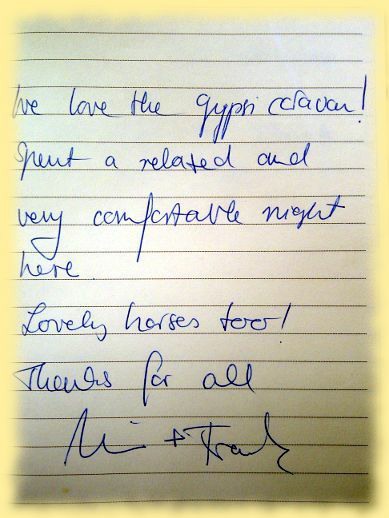 We love the gypsi caravan!
Spent a relaxed and
very comfortable night
here.
Lovely horses too!
Thanks for all
+ Frank